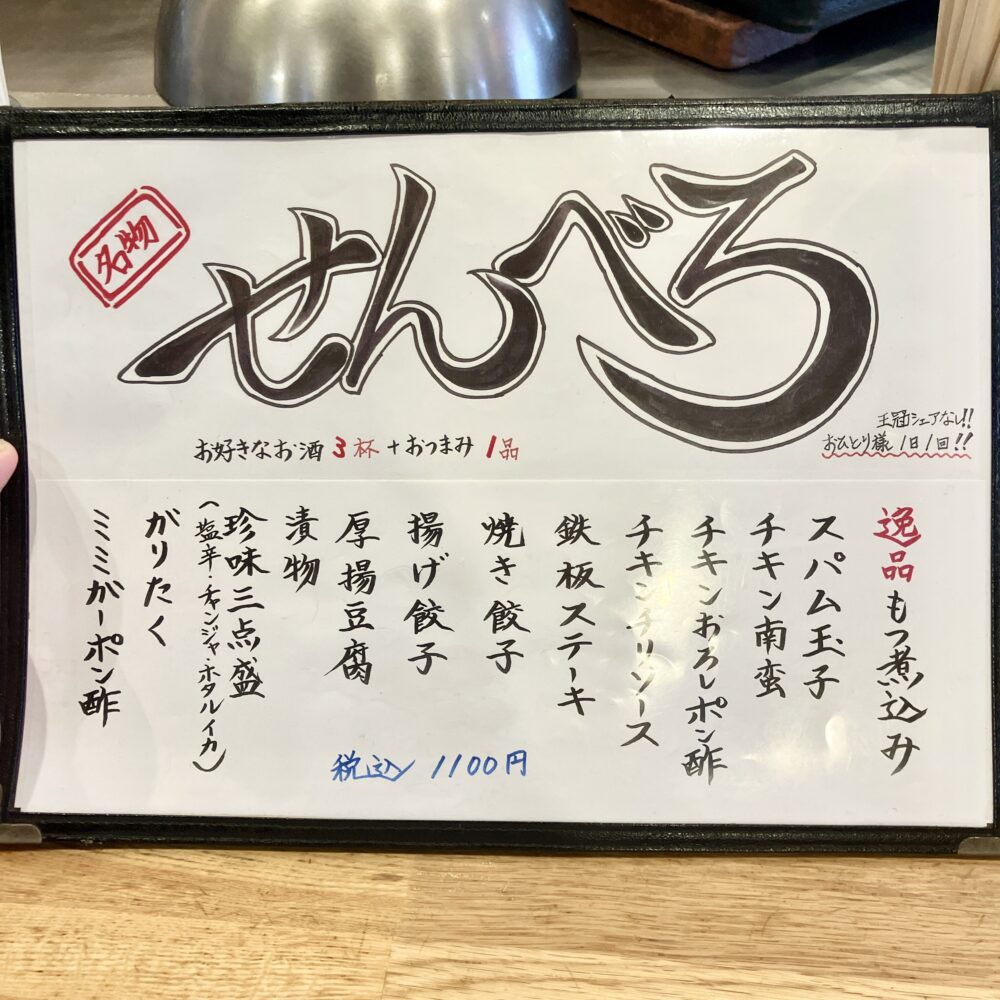 名物
せんべろ
お好きなお酒3杯+おつまみ1品
王冠シェアなし!!
おひとり様1日1回!!
逸品もつ煮込み
スパム玉子
チキン南蛮
チキンおろしポン酢
チキンチリソース
鉄板ステーキ
焼き餃子
揚げ餃子
厚揚豆腐
漬物
珍味三点盛
(塩辛・チャンジャ・ホタルイカ)
がりたく
ミミガーポン酢
税込 1100円